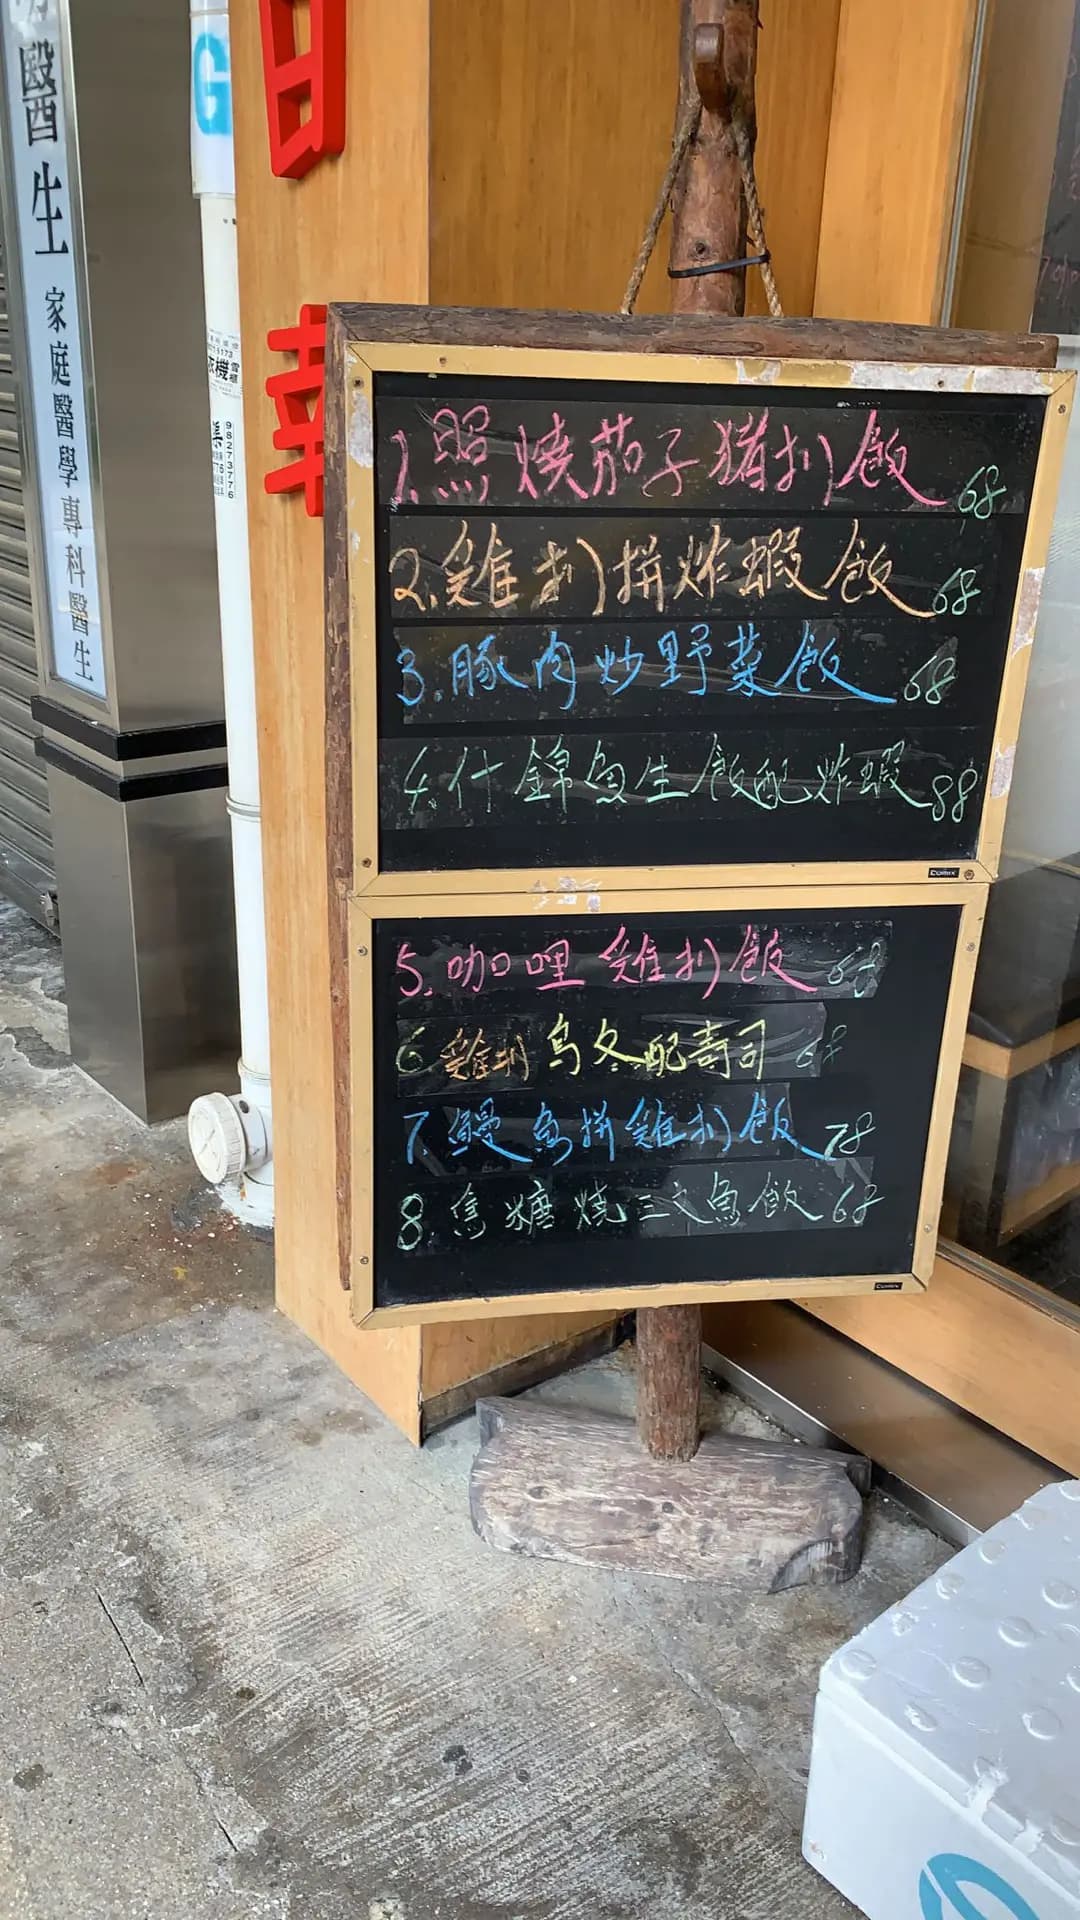 醫生
家庭醫學專科醫生
G
衣機
雪櫃
98273776
日
1.照燒茄子豬扒飯 68
2.雞扒拼炸蝦飯 68
3.豚肉炒野菜飯 68
4.什錦魚生飯配炸蝦 88
COMIX
5.咖哩雞扒飯 68
6 雞扒烏冬配壽司 68
7.鰻魚拼雞扒飯 78
8.焦糖燒三文魚飯 68
COMIX